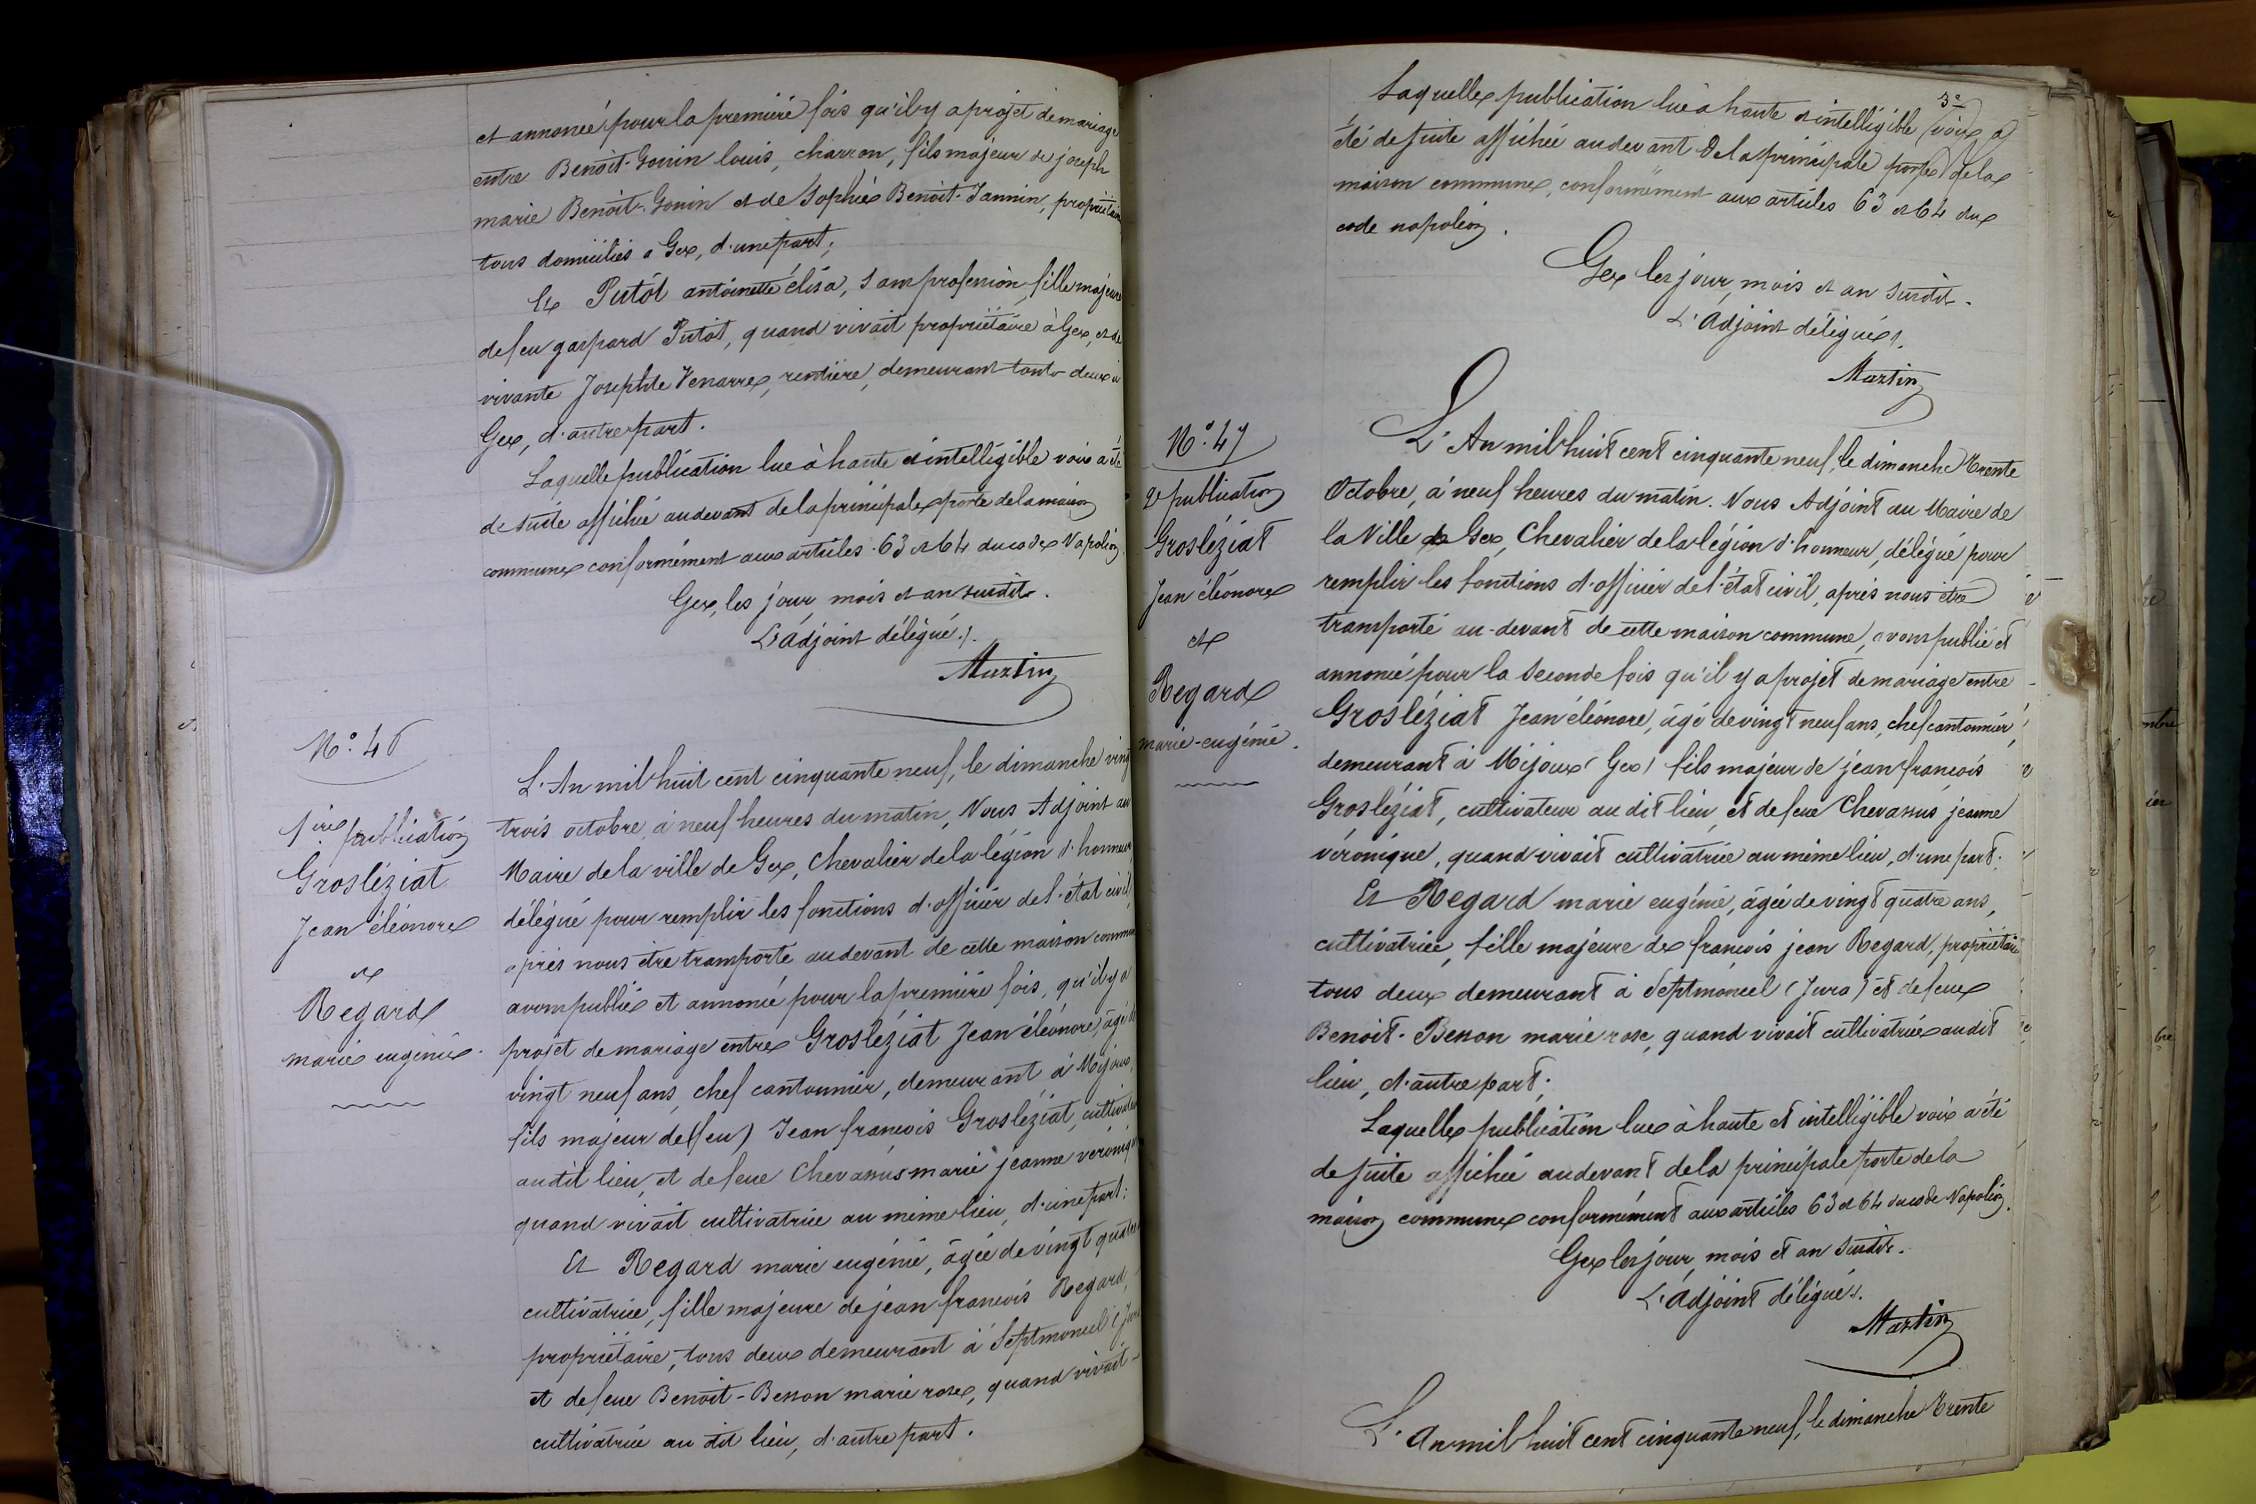 et annoncé pour la première fois qu'il y a projet de mariage
entre Benoit-Gonin louis, charron, fils majeur de joseph
marie Benoit-Gonin et de Sophie Benoit-Jannin, propriétaires
tous domiciliés à Gex, d'une part;
Et Putôt antoinette élisa, sans profession, fille majeure
de feu gaspard Putôt, quand vivait propriétaire à Gex, et de
vivante Josephte Venarre, rentière, demeurant toute deux à
Gex, d'autre part.
Laquelle publication lue à haute et intelligible voix a été
de suite affichée au devant de la principale porte de la maison
commune conformément aux articles 63 et 64 du code Napoléon,
Gex, les jour, mois et an susdits.
L'adjoint délégué.
Martin
N.º 46
1ère publication
Grosléziat
Jean éléonore
et
Regard
marie eugénie.
L'An mil huit cent cinquante neuf, le dimanche vingt
trois octobre, à neuf heures du matin, Nous Adjoint au
Maire de la ville de Gex, Chevalier de la légion d'honneur
délégué pour remplir les fonctions d'officier de l'état civil,
après nous être transporté au devant de cette maison commune
avons publié et annoncé pour la première fois, qu'il y a
projet de mariage entre Grosléziat Jean éléonore, âgé de
vingt neuf ans, chef cantonnier, demeurant à Mijoux,
fils majeur de (feu) Jean francois Grosléziat, cultivateur
au dit lieu, et de feue Chevassus marie jeanne véronique
quand vivait cultivatrice au même lieu, d'une part:
Et Regard marie eugénie, âgée de vingt quatre
cultivatrice, fille majeure de jean francois Regard,
propriétaire, tous deux demeurant à Septmoncel (Jura
et de feue Benoit-Besson marie rose, quand vivait
cultivatrice au dit lieu, d'autre part.
3º
Laquelle publication lue à haute et intelligible voix a
été de suite affichée au devant de la principale porte de la
maison commune, conformément aux articles 63 et 64 du
code napoléon.
Gex les jour, mois et an susdits.
L'Adjoint délégué.
Martin
N.º 47
2e publication
Grosléziat
Jean éléonore
et
Regard
marie-eugénie.
L'An mil huit cent cinquante neuf, le dimanche trente
Octobre, à neuf heures du matin. Nous Adjoint au Maire de
la Ville de Gex, Chevalier de la légion d'honneur, délégué pour
remplir les fonctions d'officier de l'état civil, après nous être
transporté au-devant de cette maison commune, avons publié et
annoncé pour la seconde fois qu'il y a projet de mariage entre
Grosléziat Jean éléonore, âgé de vingt neuf ans, chef cantonnier,
demeurant à Mijoux (Gex) fils majeur de jean françois
Grosléziat, cultivateur au dit lieu, et de feue Chevassus jeanne
véronique, quand vivait cultivatrice au même lieu, d'une part.
Et Regard marie eugénie, âgée de vingt quatre ans,
cultivatrice, fille majeure de francois jean Regard, propriétaire
tous deux demeurant à Septmoncel (Jura) et de feue
Benoit-Besson marie rose, quand vivait cultivatrice au dit
lieu, d'autre part;
Laquelle publication lue à haute et intelligible voix a été
de suite affichée au devant de la principale porte de la
maison commune conformément aux articles 63 et 64 du code Napoléon.
Gex les jour, mois et an susdits.
L'adjoint délégué.
Martin
L'An mil huit cent cinquante neuf, le dimanche trente